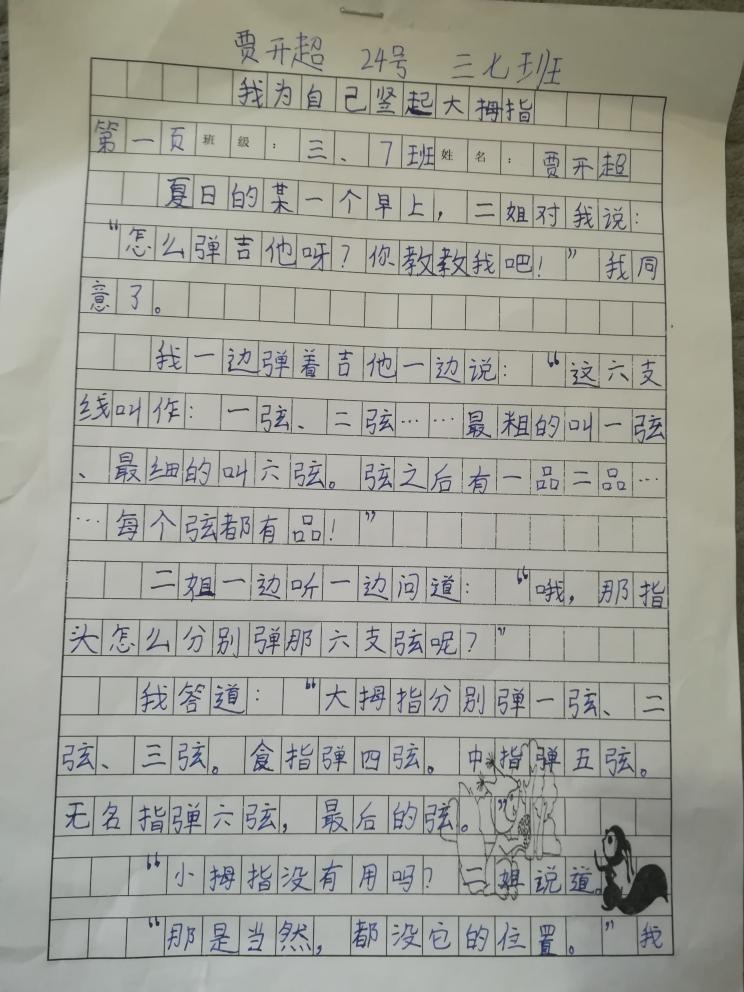 贾开超 24号 三七班
我为自己竖起大拇指
第一页班级：三、7班姓名：贾开超
夏日的某一个早上，二姐对我说：
“怎么弹吉他呀？你教教我吧！”我同
意了。
我一边弹着吉他一边说：“这六支
线叫作：一弦、二弦……最粗的叫一弦
、最细的叫六弦。弦之后有一品二品…
…每个弦都有品！”
二姐一边听一边问道：“哦，那指
头怎么分别弹那六支弦呢？”
我答道：“大拇指分别弹一弦、二
弦、三弦。食指弹四弦。中指弹五弦。
无名指弹六弦，最后的弦。”
“小拇指没有用吗？二姐说道。
“那是当然，都没它的位置。”我